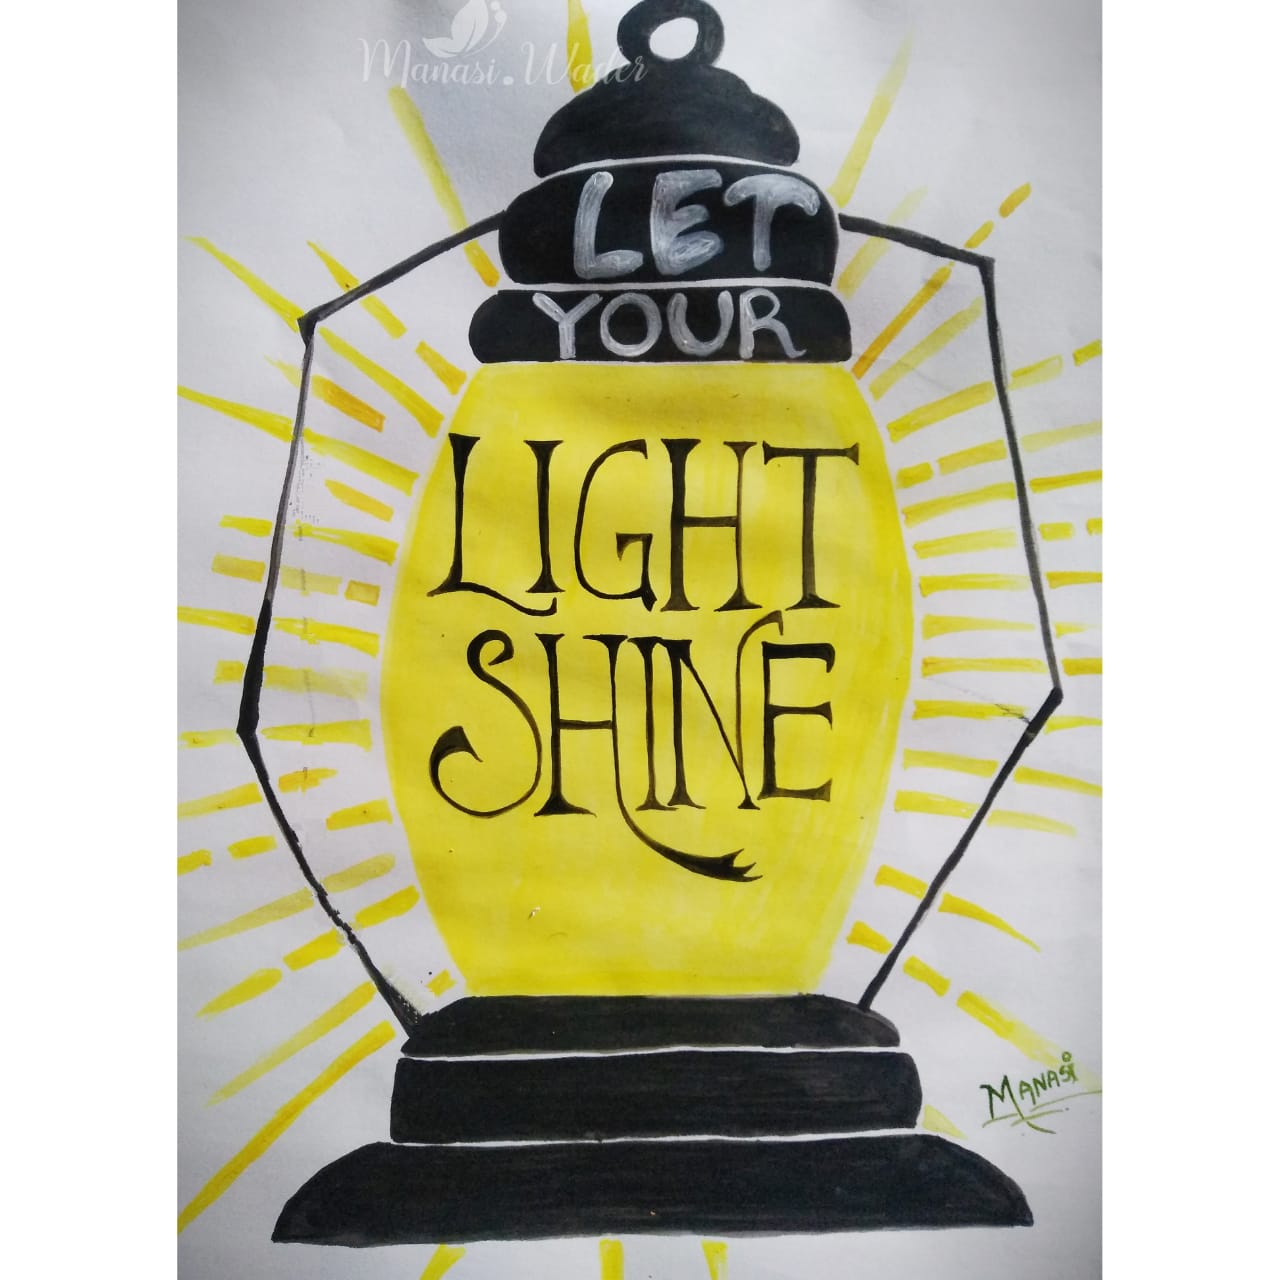 Manasi.Wader
LET
YOUR
LIGHT
SHINE
MANASI